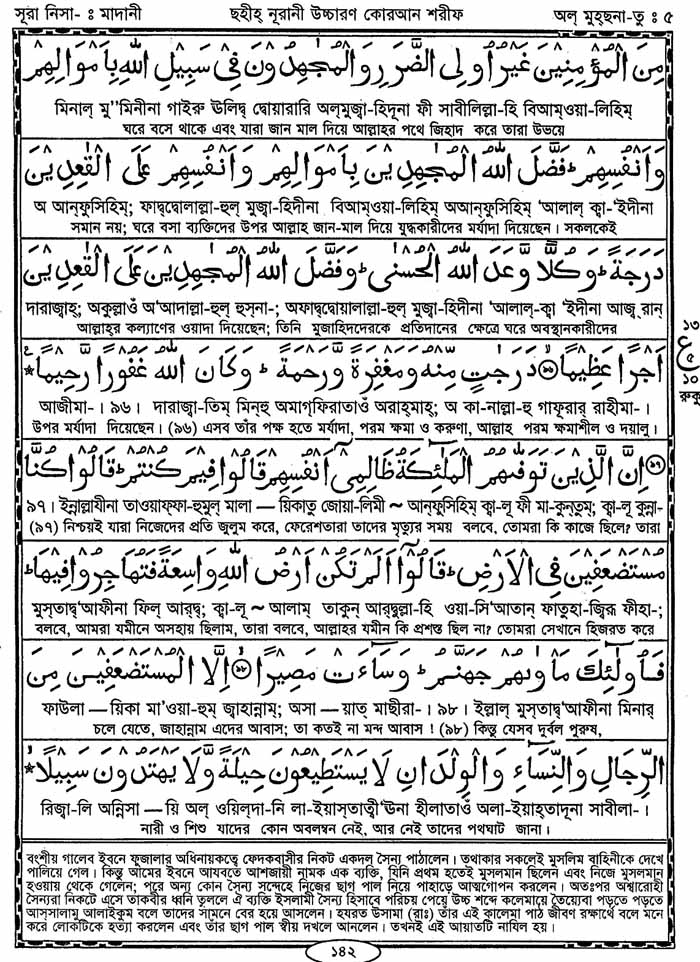 সূরা নিসা- ঃ মাদানী
ছহীহ্ নূরানী উচ্চারণ কোরআন শরীফ
অল্ মুহ্ছনা-তু ঃ ৫
مِنَ الْمُؤْمِنِيْنَ غَيْرُ اُولِى الضَّرَرِ وَ الْمُجٰهِدُوْنَ فِىْ سَبِيْلِ اللّٰهِ بِاَمْوَالِهِمْ
মিনাল্ মু”মিনীনা গাইরু ঊলিদ্ব্ দ্বোয়ারারি অল্‌মুজ্বা-হিদূনা ফী সাবীলিল্লা-হি বিআম্‌ওয়া-লিহিম্
ঘরে বসে থাকে এবং যারা জান মাল দিয়ে আল্লাহর পথে জিহাদ করে তারা উভয়ে
وَ اَنْفُسِهِمْ ؕ فَضَّلَ اللّٰهُ الْمُجٰهِدِيْنَ بِاَمْوَالِهِمْ وَ اَنْفُسِهِمْ عَلَى الْقٰعِدِيْنَ
অ আন্‌ফুসিহিম্; ফাদ্ব্দ্বোলাল্লা-হুল্ মুজ্বা-হিদীনা বিআম্‌ওয়া-লিহিম্ অআন্‌ফুসিহিম্ ‘আলাল্ ক্বা-‘ইদীনা
সমান নয়; ঘরে বসা ব্যক্তিদের উপর আল্লাহ জান-মাল দিয়ে যুদ্ধকারীদের মর্যাদা দিয়েছেন। সকলকেই
دَرَجَةً ؕ وَ كُلًّا وَّعَدَ اللّٰهُ الْحُسْنٰى ؕ وَ فَضَّلَ اللّٰهُ الْمُجٰهِدِيْنَ عَلَى الْقٰعِدِيْنَ
দারাজ্বাহ্; অকুল্লাওঁ অ‘আদাল্লা-হুল্ হুস্‌না-; অফাদ্ব্দ্বোয়ালাল্লা-হুল্ মুজ্বা-হিদীনা ‘আলাল্-ক্বা ‘ইদীনা আজ্ব্‌রান্
আল্লাহ্‌র কল্যাণের ওয়াদা দিয়েছেন; তিনি মুজাহিদদেরকে প্রতিদানের ক্ষেত্রে ঘরে অবস্থানকারীদের
اَجْرًا عَظِيْمًا ۝ دَرَجٰتٍ مِّنْهُ وَ مَغْفِرَةً وَّ رَحْمَةً ؕ وَ كَانَ اللّٰهُ غَفُوْرًا رَّحِيْمًا
১৩
ع
৫
১০
রুকু
আজীমা-। ৯৬। দারাজ্বা-তিম্ মিন্‌হু অমাগ্‌ফিরাতাওঁ অরাহ্‌মাহ্; অ কা-নাল্লা-হু গাফূরার্ রাহীমা-।
উপর মর্যাদা দিয়েছেন। (৯৬) এসব তাঁর পক্ষ হতে মর্যাদা, পরম ক্ষমা ও করুণা, আল্লাহ পরম ক্ষমাশীল ও দয়ালু।
اِنَّ الَّذِيْنَ تَوَفّٰىهُمُ الْمَلٰٓئِكَةُ ظَالِمِىْٓ اَنْفُسِهِمْ قَالُوْا فِيْمَ كُنْتُمْ ؕ قَالُوْا كُنَّا
৯৭। ইন্নাল্লাযীনা তাওয়াফ্‌ফা-হুমুল্ মালা — য়িকাতু জোয়া-লিমী ~ আন্‌ফুসিহিম্ ক্বা-লূ ফী মা-কুন্‌তুম্; ক্বা-লূ কুন্না-
(৯৭) নিশ্চয়ই যারা নিজেদের প্রতি জুলুম করে, ফেরেশতারা তাদের মৃত্যুর সময় বলবে, তোমরা কি কাজে ছিলে? তারা
مُسْتَضْعَفِيْنَ فِى الْاَرْضِ ؕ قَالُوْٓا اَلَمْ تَكُنْ اَرْضُ اللّٰهِ وَاسِعَةً فَتُهَاجِرُوْا فِيْهَا ؕ
মুস্‌তাদ্ব্‘আফীনা ফিল্ আর্‌দ্ব্; ক্বা-লূ ~ আলাম্ তাকুন্ আর্‌দ্বুল্লা-হি ওয়া-সি‘আতান্ ফাতুহা-জ্বিরূ ফীহা-;
বলবে, আমরা যমীনে অসহায় ছিলাম, তারা বলবে, আল্লাহর যমীন কি প্রশস্ত ছিল না? তোমরা সেখানে হিজরত করে
فَاُولٰٓئِكَ مَاْوٰىهُمْ جَهَنَّمُ ؕ وَ سَآءَتْ مَصِيْرًا ۝ اِلَّا الْمُسْتَضْعَفِيْنَ مِنَ
ফাউলা — য়িকা মা’ওয়া-হুম্ জ্বাহান্নাম্; অসা — য়াত্ মাছীরা-। ৯৮। ইল্লাল্ মুস্‌তাদ্ব্‘আফীনা মিনার্
চলে যেতে, জাহান্নাম এদের আবাস; তা কতই না মন্দ আবাস ! (৯৮) কিন্তু যেসব দুর্বল পুরুষ,
الرِّجَالِ وَ النِّسَآءِ وَ الْوِلْدَانِ لَا يَسْتَطِيْعُوْنَ حِيْلَةً وَّ لَا يَهْتَدُوْنَ سَبِيْلًا
রিজ্বা-লি অন্নিসা — য়ি অল্ ওয়িল্‌দা-নি লা-ইয়াস্‌তাত্বী‘ঊনা হীলাতাওঁ অলা-ইয়াহ্‌তাদূনা সাবীলা-।
নারী ও শিশু যাদের কোন অবলম্বন নেই, আর নেই তাদের পথঘাট জানা।
বংশীয় গালেব ইবনে ফুজালার অধিনায়কত্বে ফেদকবাসীর নিকট একদল সৈন্য পাঠালেন। তথাকার সকলেই মুসলিম বাহিনীকে দেখে
পালিয়ে গেল। কিন্তু আমের ইবনে আযবতে আশজায়ী নামক এক ব্যক্তি, যিনি প্রথম হতেই মুসলমান ছিলেন এবং নিজে মুসলমান
হওয়ায় থেকে গেলেন; পরে অন্য কোন সৈন্য সন্দেহে নিজের ছাগ পাল নিয়ে পাহাড়ে আত্মগোপন করলেন। অতঃপর অশ্বারোহী
সৈন্যরা নিকটে এসে তাকবীর ধ্বনি তুললে ঐ ব্যক্তি ইসলামী সৈন্য হিসাবে পরিচয় পেয়ে উচ্চ শব্দে কলেমায়ে তৈয়্যেবা পড়তে পড়তে
আস্‌সালামু আলাইকুম বলে তাদের সামনে বের হয়ে আসলেন। হযরত উসামা (রাঃ) তাঁর এই কালেমা পাঠ জীবণ রক্ষার্থে বলে মনে
করে লোকটিকে হত্যা করলেন এবং তাঁর ছাগ পাল স্বীয় দখলে আনলেন। তখনই এই আয়াতটি নাযিল হয়।
১৪২